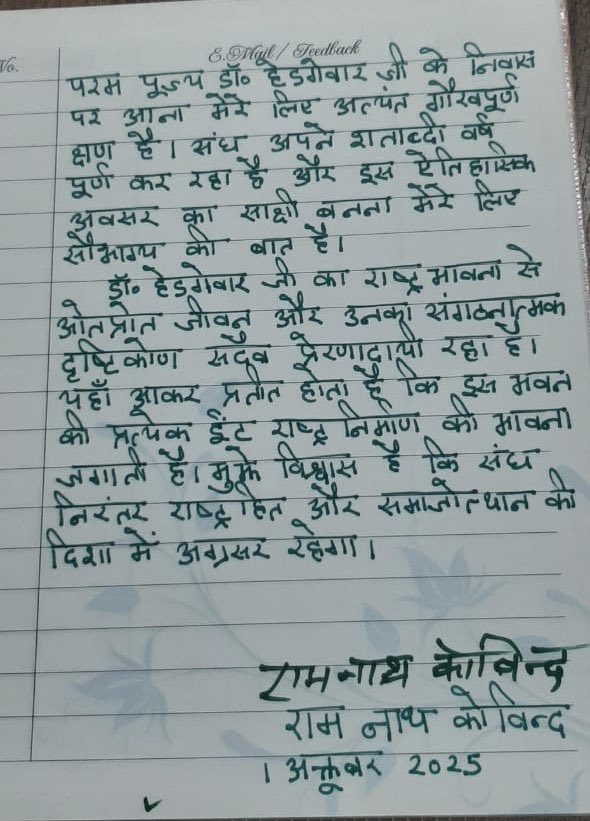 No.
E.Mail / Feedback
परम पूज्य डॉ० हेडगेवार जी के निवास
पर आना मेरे लिए अत्यंत गौरवपूर्ण
क्षण है। संघ अपने शताब्दी वर्ष
पूर्ण कर रहा है और इस ऐतिहासिक
अवसर का साक्षी बनना मेरे लिए
सौभाग्य की बात है।
डॉ० हेडगेवार जी का राष्ट्र भावना से
ओतप्रोत जीवन और उनका संगठनात्मक
दृष्टिकोण सदैव प्रेरणादायी रहा है।
यहाँ आकर प्रतीत होता है कि इस भवन
की प्रत्येक ईंट राष्ट्र निर्माण की भावना
जगाती है। मुझे विश्वास है कि संघ
निरंतर राष्ट्रहित और समाजोत्थान की
दिशा में अग्रसर रहेगा।
रामनाथ कोविन्द
राम नाथ कोविन्द
1 अक्तूबर 2025